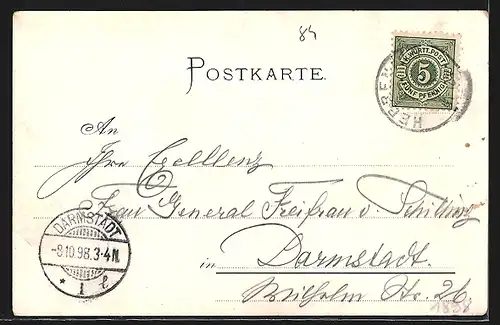 84
K. WÜRTT. POST
5
FÜNF PFENNIG
HERREN
POSTKARTE.
An
Ihre Excellenz
Frau General Freifrau v. Schilling
DARMSTADT
-8.10.98.3-4N.
* 1 e
in Darmstadt.
Wilhelm Str. 26
1898